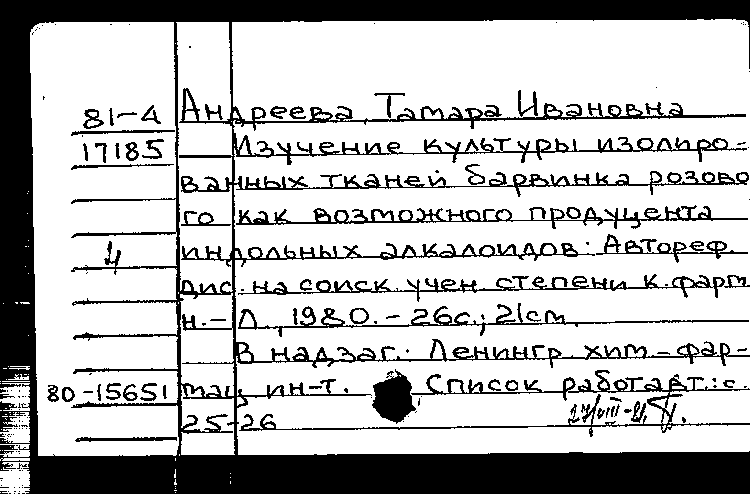 81-4 Андреева, Тамара Ивановна
17185 Изучение культуры изолиро=
ванных тканей барвинка розово
го как возможного продуцента
4 индольных алкалоидов: Автореф.
дис. на соиск. учен. степени к. фарм
н. - Л., 1980. - 26с.; 21см.
В надзаг.: Ленингр. хим-фар-
80-15651 мац. ин-т. Список работ авт.: с.
25-26